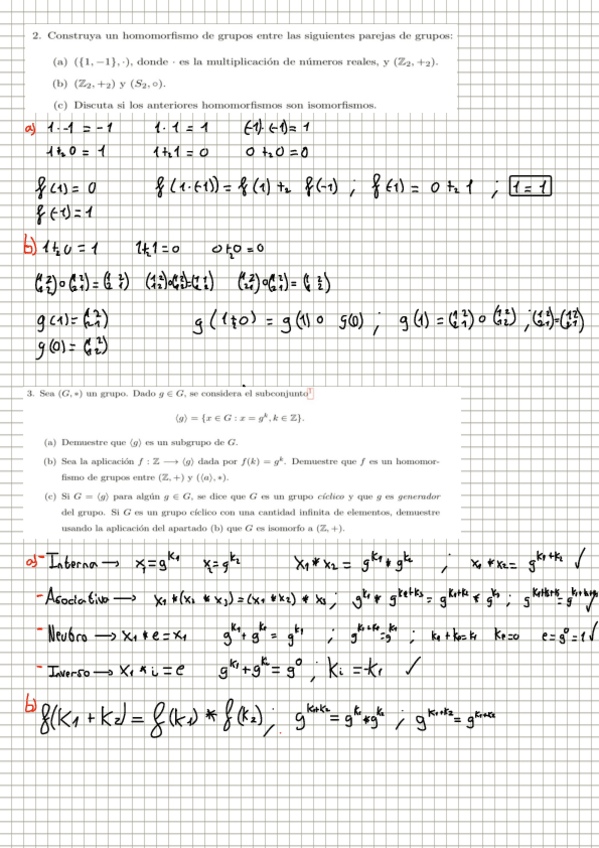 2. Construya un homomorfismo de grupos entre las siguientes parejas de grupos:
(a) ({1, −1}, ·), donde · es la multiplicación de números reales, y (ℤ₂, +₂).
(b) (ℤ₂, +₂) y (S₂, ∘).
(c) Discuta si los anteriores homomorfismos son isomorfismos.
a) 1 · -1 = -1 1 · 1 = 1 (-1) · (-1) = 1
1 +₂ 0 = 1 1 +₂ 1 = 0 0 +₂ 0 = 0
f(1) = 0 f(1·(-1)) = f(1) +₂ f(-1) ; f(-1) = 0 +₂ 1 ; 1 = 1
f(-1) = 1
b) 1 +₂ 0 = 1 1 +₂ 1 = 0 0 +₂ 0 = 0
g(1) = (1 2 / 2 1) g(1 +₂ 0) = g(1) ∘ g(0) ; g(1) = (1 2 / 2 1) ∘ (1 2 / 1 2) ; (1 2 / 2 1) = (1 2 / 2 1)
g(0) = (1 2 / 1 2)
3. Sea (G, ∗) un grupo. Dado g ∈ G, se considera el subconjunto¹
⟨g⟩ = {x ∈ G : x = gᵏ, k ∈ ℤ}.
(a) Demuestre que ⟨g⟩ es un subgrupo de G.
(b) Sea la aplicación f : ℤ ⟶ ⟨g⟩ dada por f(k) = gᵏ. Demuestre que f es un homomor-
fismo de grupos entre (ℤ, +) y (⟨g⟩, ∗).
(c) Si G = ⟨g⟩ para algún g ∈ G, se dice que G es un grupo cíclico y que g es generador
del grupo. Si G es un grupo cíclico con una cantidad infinita de elementos, demuestre
usando la aplicación del apartado (b) que G es isomorfo a (ℤ, +).
a) - Interna → x₁ = g^k₁ x₂ = g^k₂ x₁ * x₂ = g^k₁ * g^k₂ ; x₁ * x₂ = g^(k₁+k₂) ✓
- Asociativo → x₁ * (x₂ * x₃) = (x₁ * x₂) * x₃ ; g^k₁ * g^(k₂+k₃) = g^(k₁+k₂) * g^k₃ ; g^(k₁+k₂+k₃) = g^(k₁+k₂+k₃) ✓
- Neutro → x₁ * e = x₁ g^k₁ + g^k₂ = g^k₁ ; g^(k₁+k₂) = g^k₁ ; k₁ + k₂ = k₁ k₂ = 0 e = g⁰ = 1 ✓
- Inverso → x₁ * i = e g^k₁ + g^k₂ = g⁰ ; kᵢ = -k₁ ✓
b) f(k₁ + k₂) = f(k₁) * f(k₂) ; g^(k₁+k₂) = g^k₁ * g^k₂ ; g^(k₁+k₂) = g^(k₁+k₂)